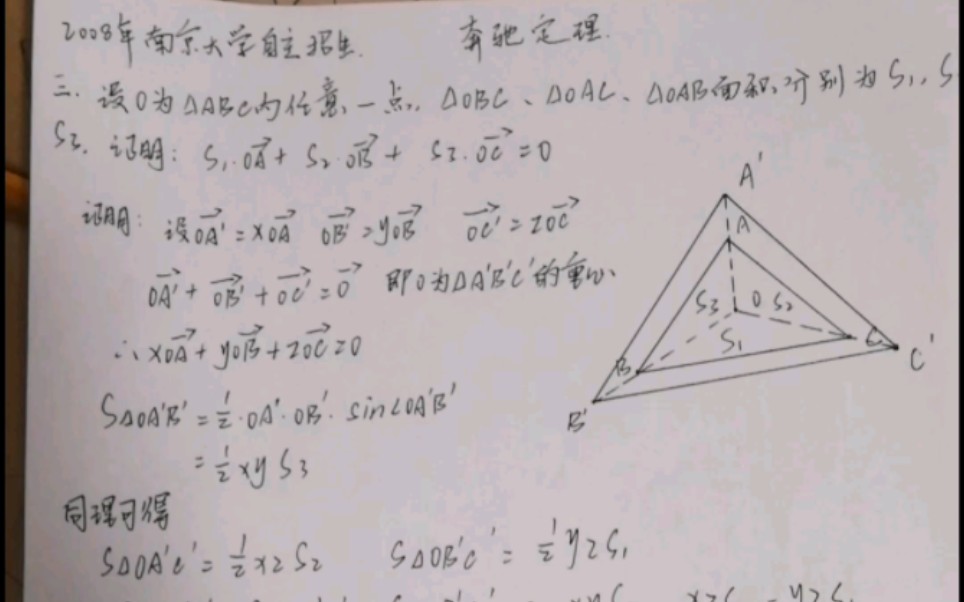 2008年南京大学自主招生. 奔驰定理.
三. 设O为△ABC内任意一点, △OBC、△OAC、△OAB面积分别为S₁, S
S₃. 证明: S₁·OA→ + S₂·OB→ + S₃·OC→ = 0
证明: 设OA'→ = xOA→ OB'→ = yOB→ OC'→ = zOC→
OA'→ + OB'→ + OC'→ = 0→ 即O为△A'B'C'的重心
∴ xOA→ + yOB→ + zOC→ = 0
S△OA'B' = ½·OA'·OB'·sin∠OA'B'
= ½xyS₃
同理可得
S△OA'C' = ½xzS₂ S△OB'C' = ½yzS₁
A'
A
S₃ O S₂
S₁
B C
B' C'